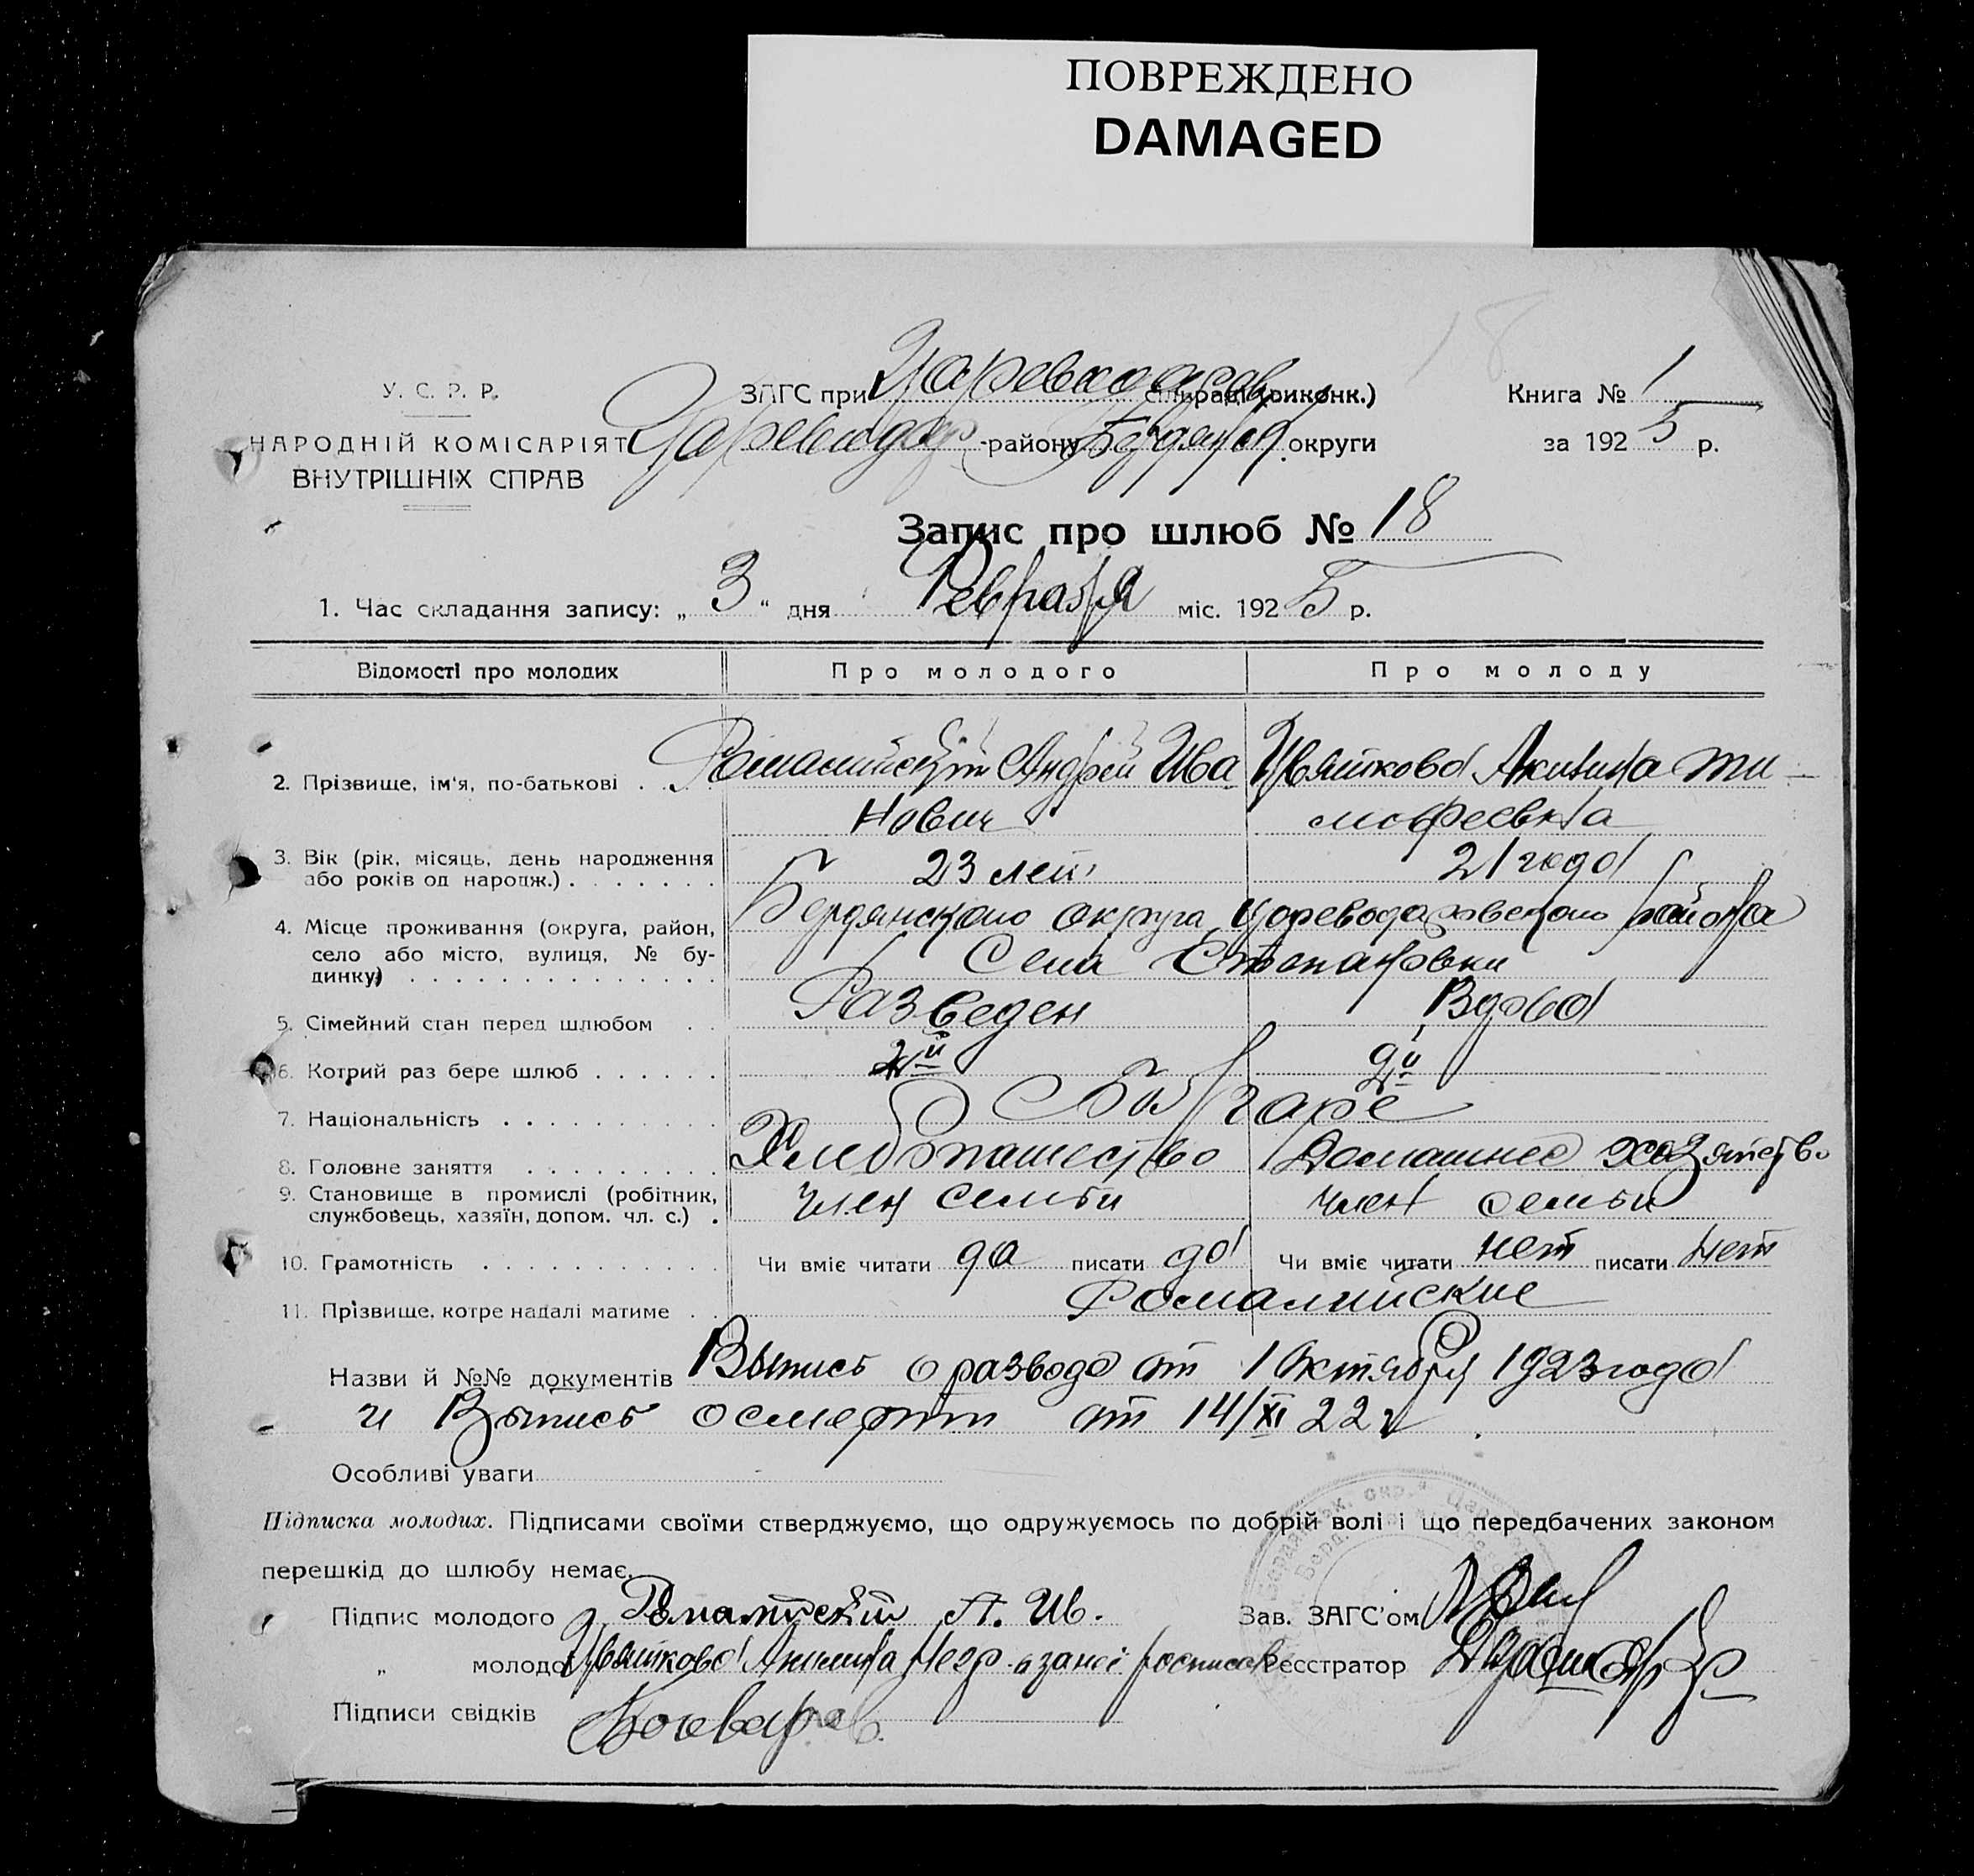 ПОВРЕЖДЕНО
DAMAGED
18
У. С. Р. Р.
НАРОДНІЙ КОМІСАРІЯТ
ВНУТРІШНІХ СПРАВ
ЗАГС при сільраді (риконк.)
району Бердянск. округи
Книга № 1
за 1925 р.
Запис про шлюб № 18
1. Час складання запису: „ 3 “ дня Февраля міс. 1925 р.
Відомості про молодих Про молодого Про молоду
2. Прізвище, ім'я, по-батькові . . . . Андрей Ива Цвяткова Акилина Ти-
нович мофеевна
3. Вік (рік, місяць, день народження
або років од народж.) . . . . . . . 23 лет 21 года
4. Місце проживання (округа, район, Бердянского округа, Цареводаровского района
село або місто, вулиця, № бу- Села Степановки
динку) . . . . . . . . . . . . . .
5. Сімейний стан перед шлюбом . . Разведен Вдова
6. Котрий раз бере шлюб . . . . . . 2й 2й
7. Національність . . . . . . . . . . Болгаре
8. Головне заняття . . . . . . . . . Хлебопашество Домашнее хозяйство
9. Становище в промислі (робітник,
службовець, хазяїн, допом. чл. с.) . член семьи член семьи
10. Грамотність . . . . . . . . . . . Чи вміє читати да писати да Чи вміє читати нет писати нет
11. Прізвище, котре надалі матиме . .
Назви й №№ документів Выпись о разводе от 1 Октября 1923 года
и Выпись о смерти от 14/XI 22 г.
Особливі уваги
Підписка молодих. Підписами своїми стверджуємо, що одружуємось по добрій волі і що передбачених законом
перешкід до шлюбу немає.
Підпис молодого А. Ив. Зав. ЗАГС'ом
„ молодої Цвяткова Акилина Реєстратор
Підписи свідків